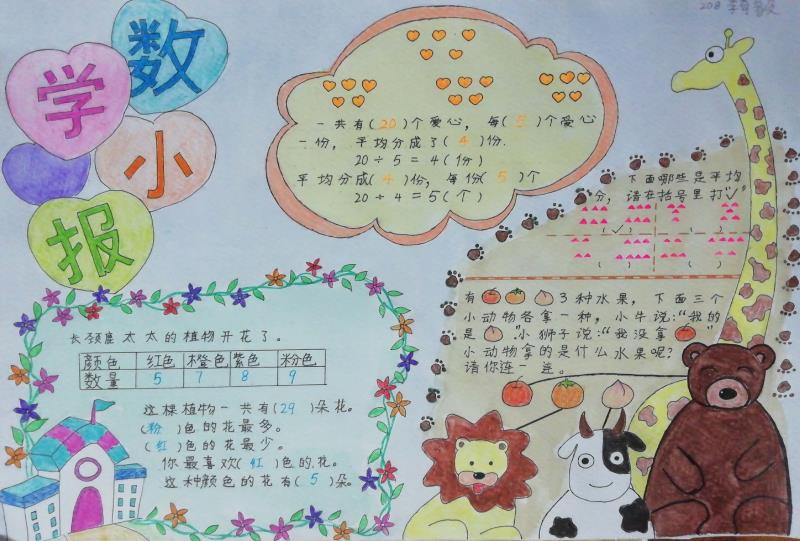 208
数学
小
报
一共有(20)个爱心，每(5)个爱心
一份，平均分成了(4)份.
20÷5=4(份)
平均分成(4)份，每份(5)个
20÷4=5(个)
下面哪些是平均
分，请在括号里打“✓”
(✓) ( )
( ) ( )
有 3种水果，下面三个
小动物各拿一种，小牛说：“我的
是 ”小狮子说：“我没拿 ”
小动物拿的是什么水果呢？
请你连一连。
长颈鹿太太的植物开花了。
颜色 红色 橙色 紫色 粉色
数量 5 7 8 9
这棵植物一共有(29)朵花。
(粉)色的花最多。
(红)色的花最少。
你最喜欢(红)色的花。
这种颜色的花有(5)朵。